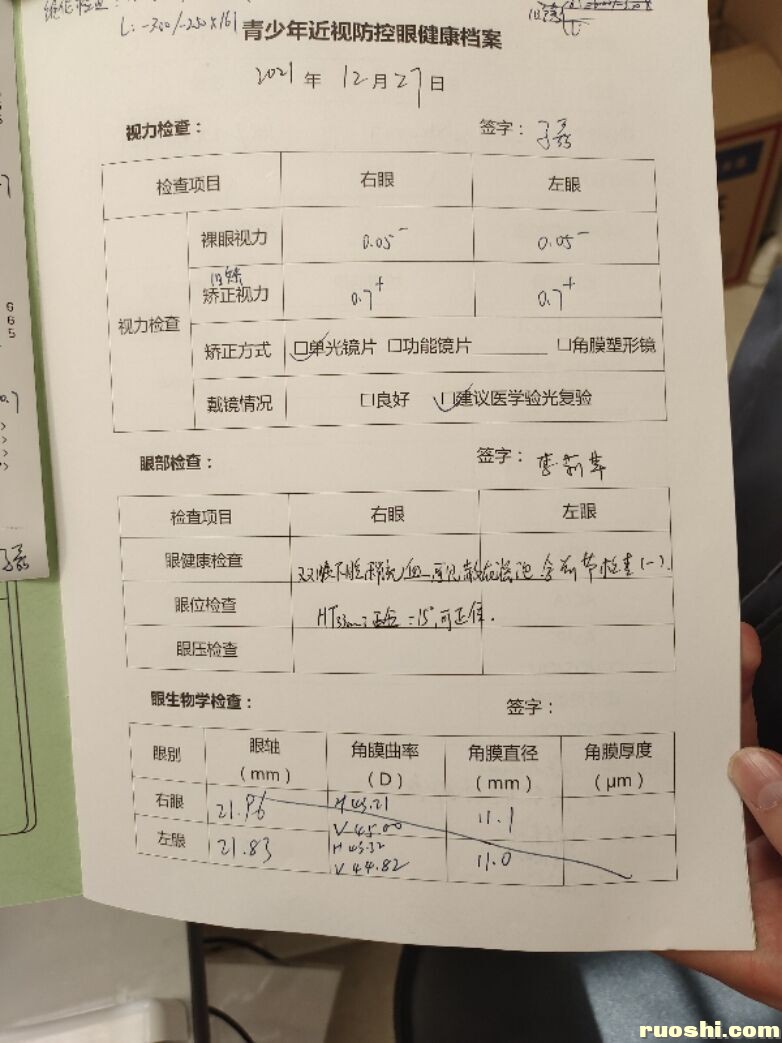 L: -300/-250×161
青少年近视防控眼健康档案
2021 年 12 月 27 日
视力检查： 签字：
检查项目 右眼 左眼
视力检查
裸眼视力 0.05⁻ 0.05⁻
旧镜
矫正视力 0.7⁺ 0.7⁺
矫正方式 ☑单光镜片 □功能镜片 □角膜塑形镜
戴镜情况 □良好 ☑建议医学验光复验
眼部检查： 签字：
检查项目 右眼 左眼
眼健康检查
眼位检查 HT33cm 15° 可正位.
眼压检查
眼生物学检查： 签字：
眼别 眼轴（mm） 角膜曲率（D） 角膜直径（mm） 角膜厚度（μm）
右眼 21.96 H 43.21 V 45.00 11.1
左眼 21.83 H 43.32 V 44.82 11.0
6
6
5
0.7
ruoshi.com